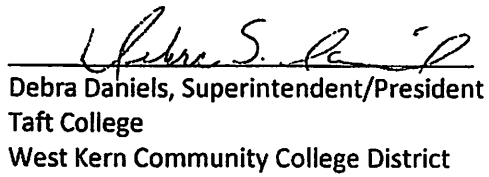 Debra S. Daniels
Debra Daniels, Superintendent/President
Taft College
West Kern Community College District